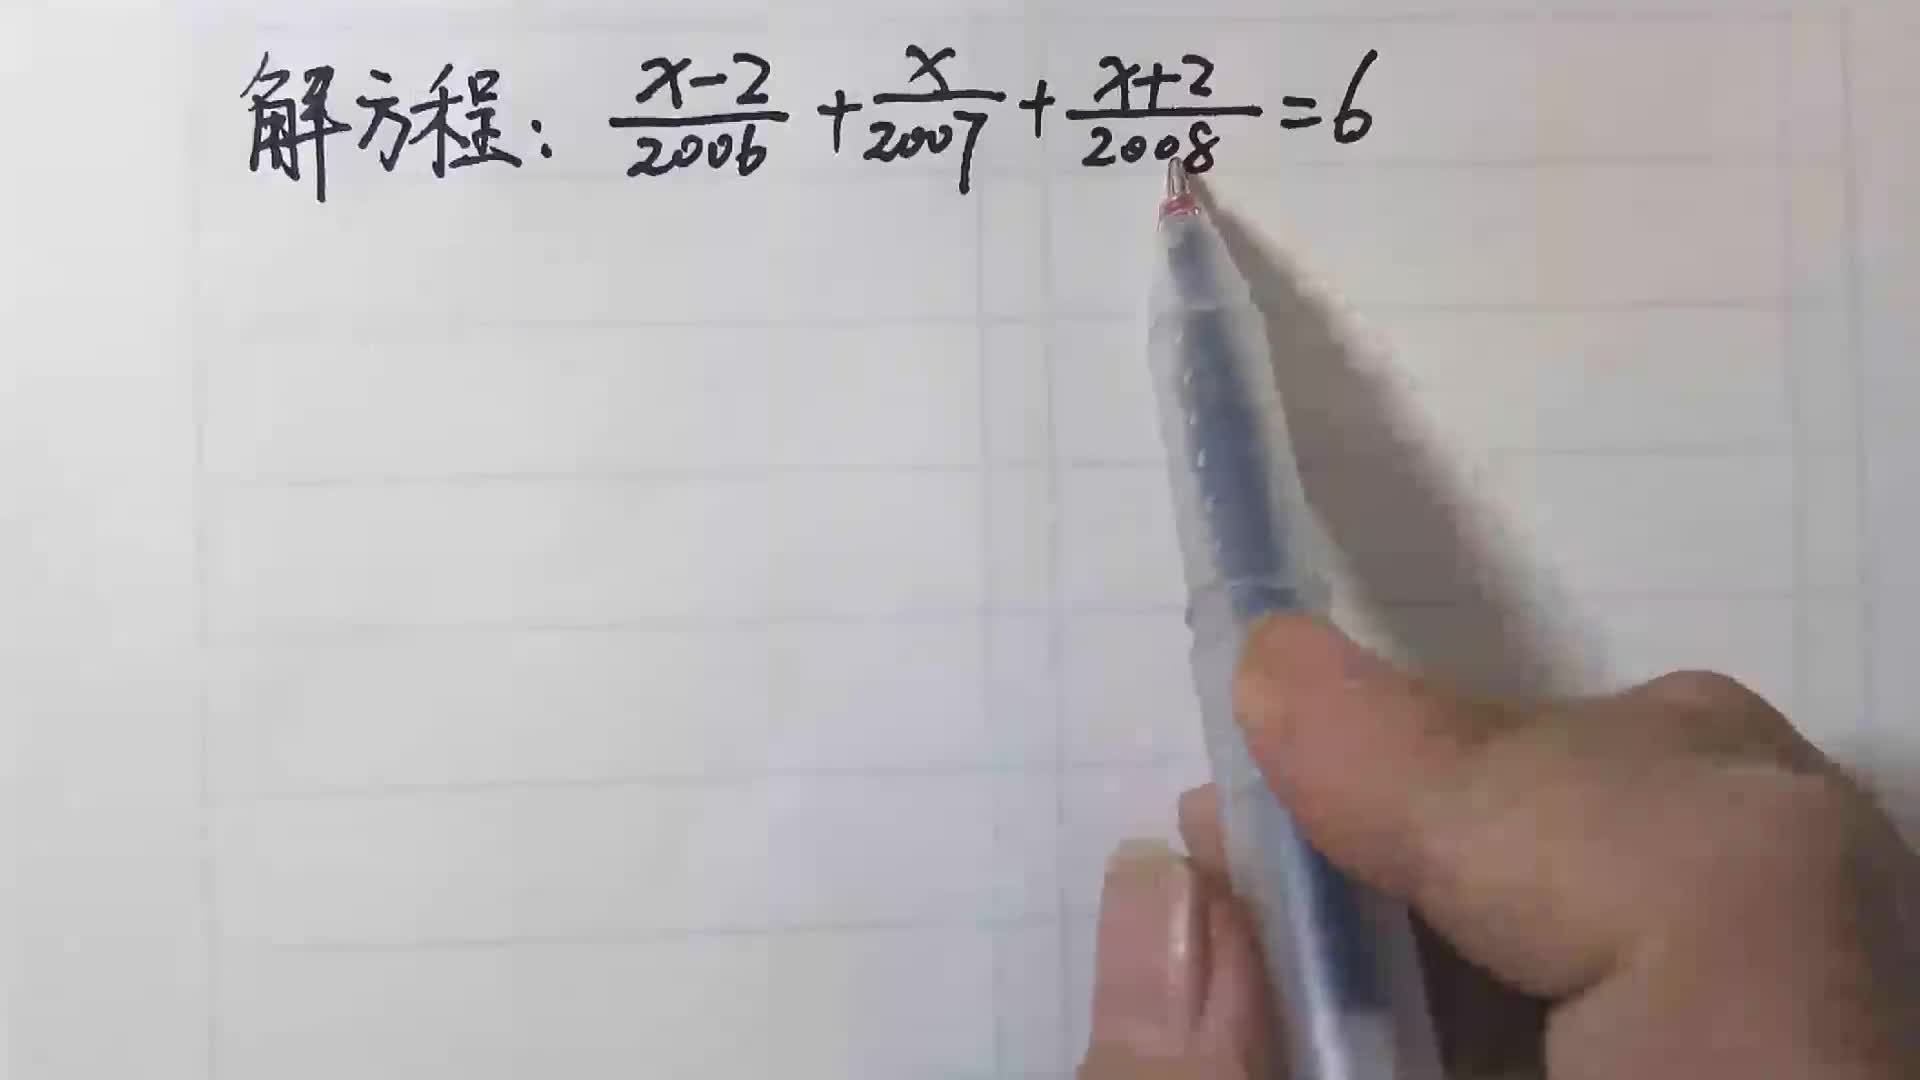 解方程: \frac{x-2}{2006} + \frac{x}{2007} + \frac{x+2}{2008} = 6